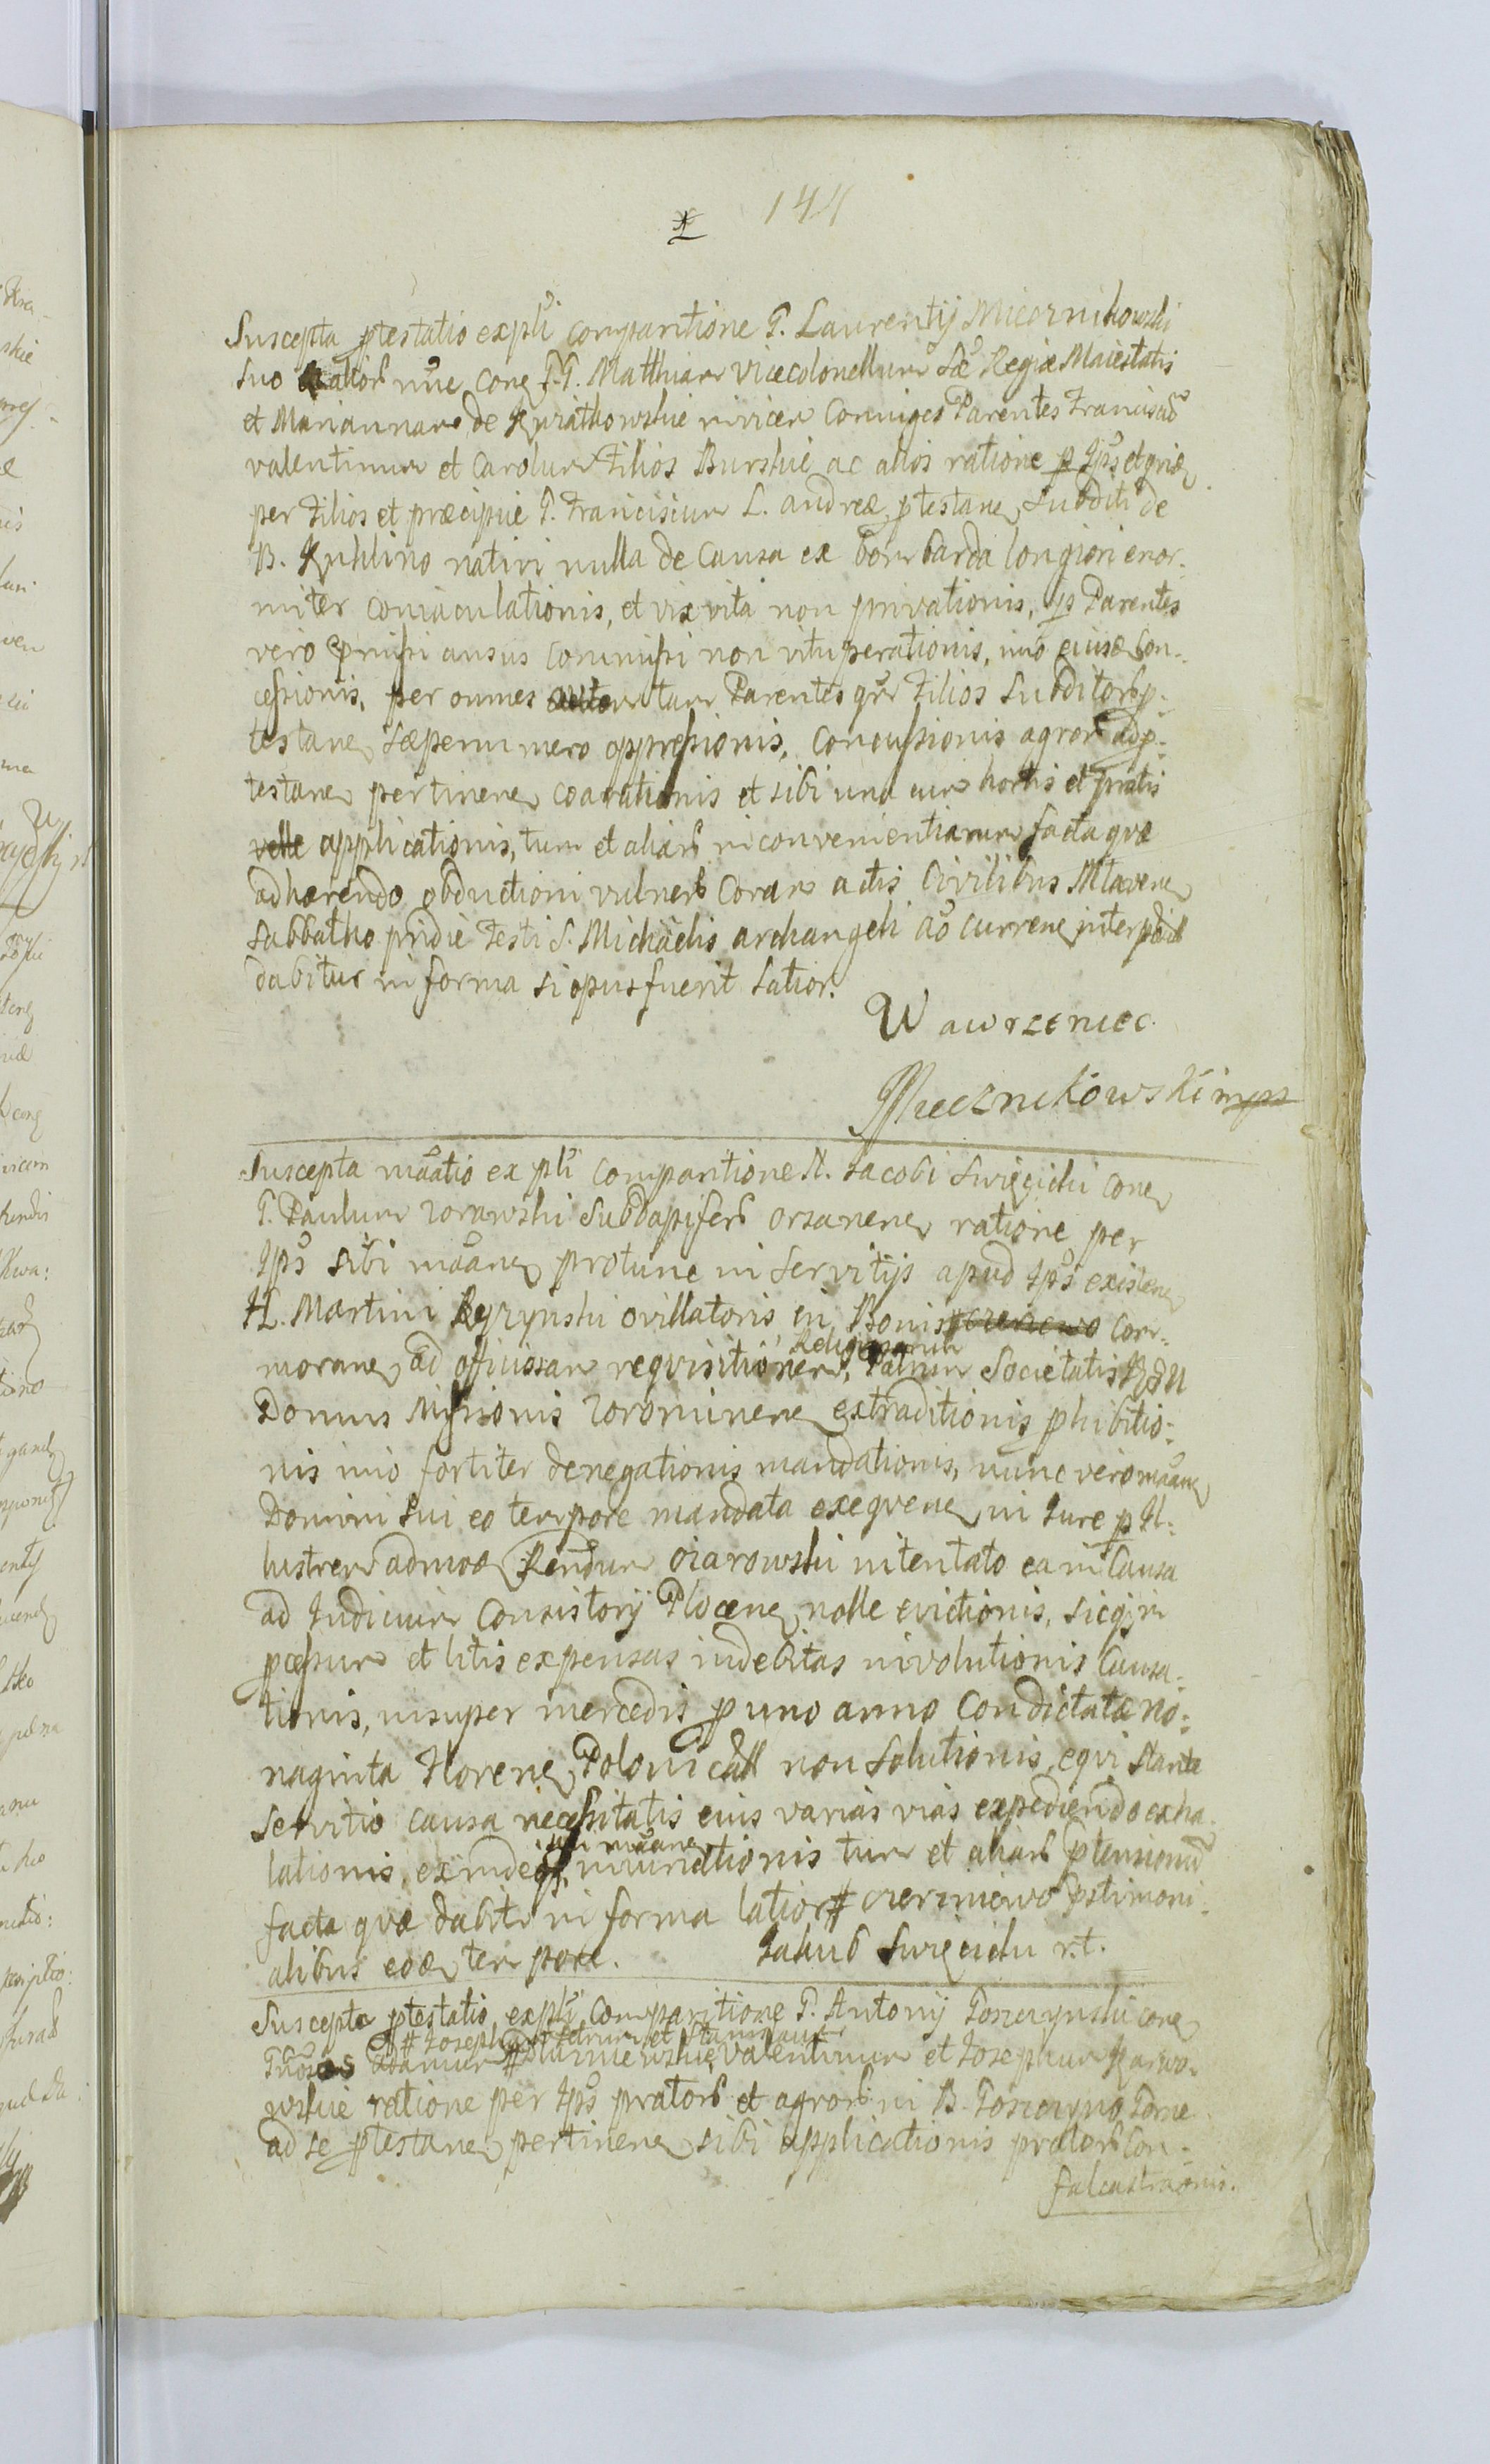 144
Suscepta ptestatio ex pti comparitione G. Laurentij Miecznikowski
suo et alior nne conę G.G. Matthiam Vicecolonellum Sæ Regiæ Maiestatis
et Mariannam de invicem Coniuges Parentes Franciscū
valentinum et Carolum Filios Burskie ac alios ratione p Ips et
per Filios et præcipue G. Franciscum L. andreæ ptestanę Subditi de
B. Kuklino nativi nulla de Causa ex bombarda longiori enor-
miter coniaculationis, et vix vita non privationis, p Parentes
vero pmissi ausus commissi non vituperationis, imo eiusdę con-
cessionis, per omnes tam Parentes qm Filios Subditorb p-
testanę sæpenumero oppressionis, Concussionis agror ad p-
testanę pertinenę coarationis et sibi una cum hortis et pratis
velle applicationis, tum et aliarb inconvenientiarum facta quæ
adhærendo obductioni vulnerb Coram actis Civilibus Mlavenę
Sabbatho pridie Festi S. Michaelis archangeli ao currenę interposit
dabitur in forma si opus fuerit latior.
Wawrzeniec
Miecznikowski mpp
Suscepta mãatio ex pti comparitione N. Jacobi Swięcicki conę
G. Paulum Zorawski Subdapiferb orsanenę ratione per
Ips sibi mãanę protunc in servitijs apud Ips existenę
H. Martini Ryzynski ovillatoris in Bonis com-
moranę ad officiosam requisitionem, Religiosorum Patrum Societatis Jesu
Domus Missionis Zorominenę extraditionis phibitio-
nis imo fortiter denegationis mandationis, nunc vero mãanę
Domini sui eo tempore mandata exequenę in Jure p Il-
lustrem admodę Rendum Ozarowski intentato ea in Causa
ad Judicium Consistorij Plocenę nolle evictionis, sicq in
pcessum et litis expensas indebitas involutionis Causa-
tionis, insuper mercedis p uno anno Condictatæ no-
naginta Florenę Polonicall non solutionis, equi stante
servitio causa necessitatis eius varias vias expediendo exha-
lationis, exinde sui mãanę tum et aliarb ptensionū
facta quæ dabitr in forma latior # Czerniewo pstimoni-
alibus eodę tempore. Jakub Swięcicki r.t.
Suscepta ptestatio ex pti Comparitione G. Antonij Gosczynski conę
# Josephum Petrum et Stanislaum
Gnosos Adamum # valentinum et Josephum Karwo-
wskie ratione per Ips pratorb et agrorb in B. Gosczyno Gorne
ad se ptestanę pertinenę sibi applicationis pratorb con-
falcastraonis.